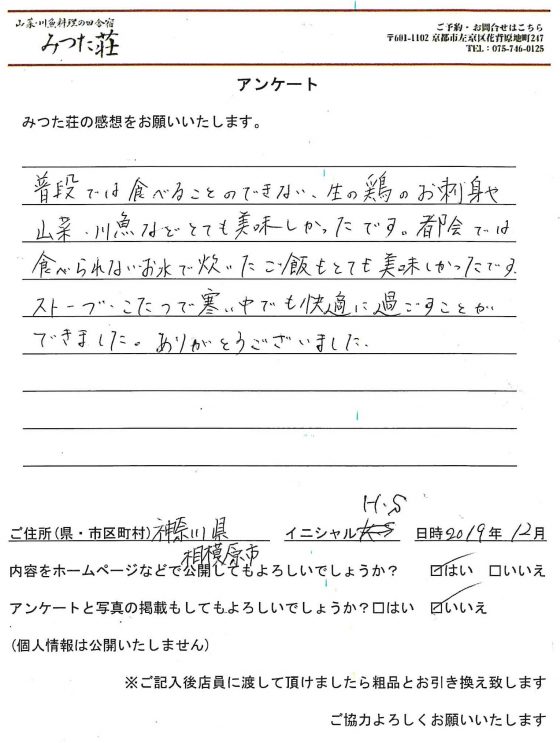 山菜・川魚料理の田舎宿
みつた荘
ご予約・お問合せはこちら
〒601-1102 京都市左京区花背原地町247
TEL:075-746-0125
アンケート
みつた荘の感想をお願いいたします。
普段では食べることのできない、生の鶏のお刺身や
山菜、川魚などとても美味しかったです。都会では
食べられないお水で炊いたご飯もとても美味しかったです。
ストーブ・こたつで寒い中でも快適に過ごすことが
できました。ありがとうございました。
H.S
ご住所(県・市区町村) 神奈川県 イニシャル 日時2019年12月
相模原市
内容をホームページなどで公開してもよろしいでしょうか? ☑はい □いいえ
アンケートと写真の掲載もしてもよろしいでしょうか?□はい ☑いいえ
(個人情報は公開いたしません)
※ご記入後店員に渡して頂けましたら粗品とお引き換え致します
ご協力よろしくお願いいたします